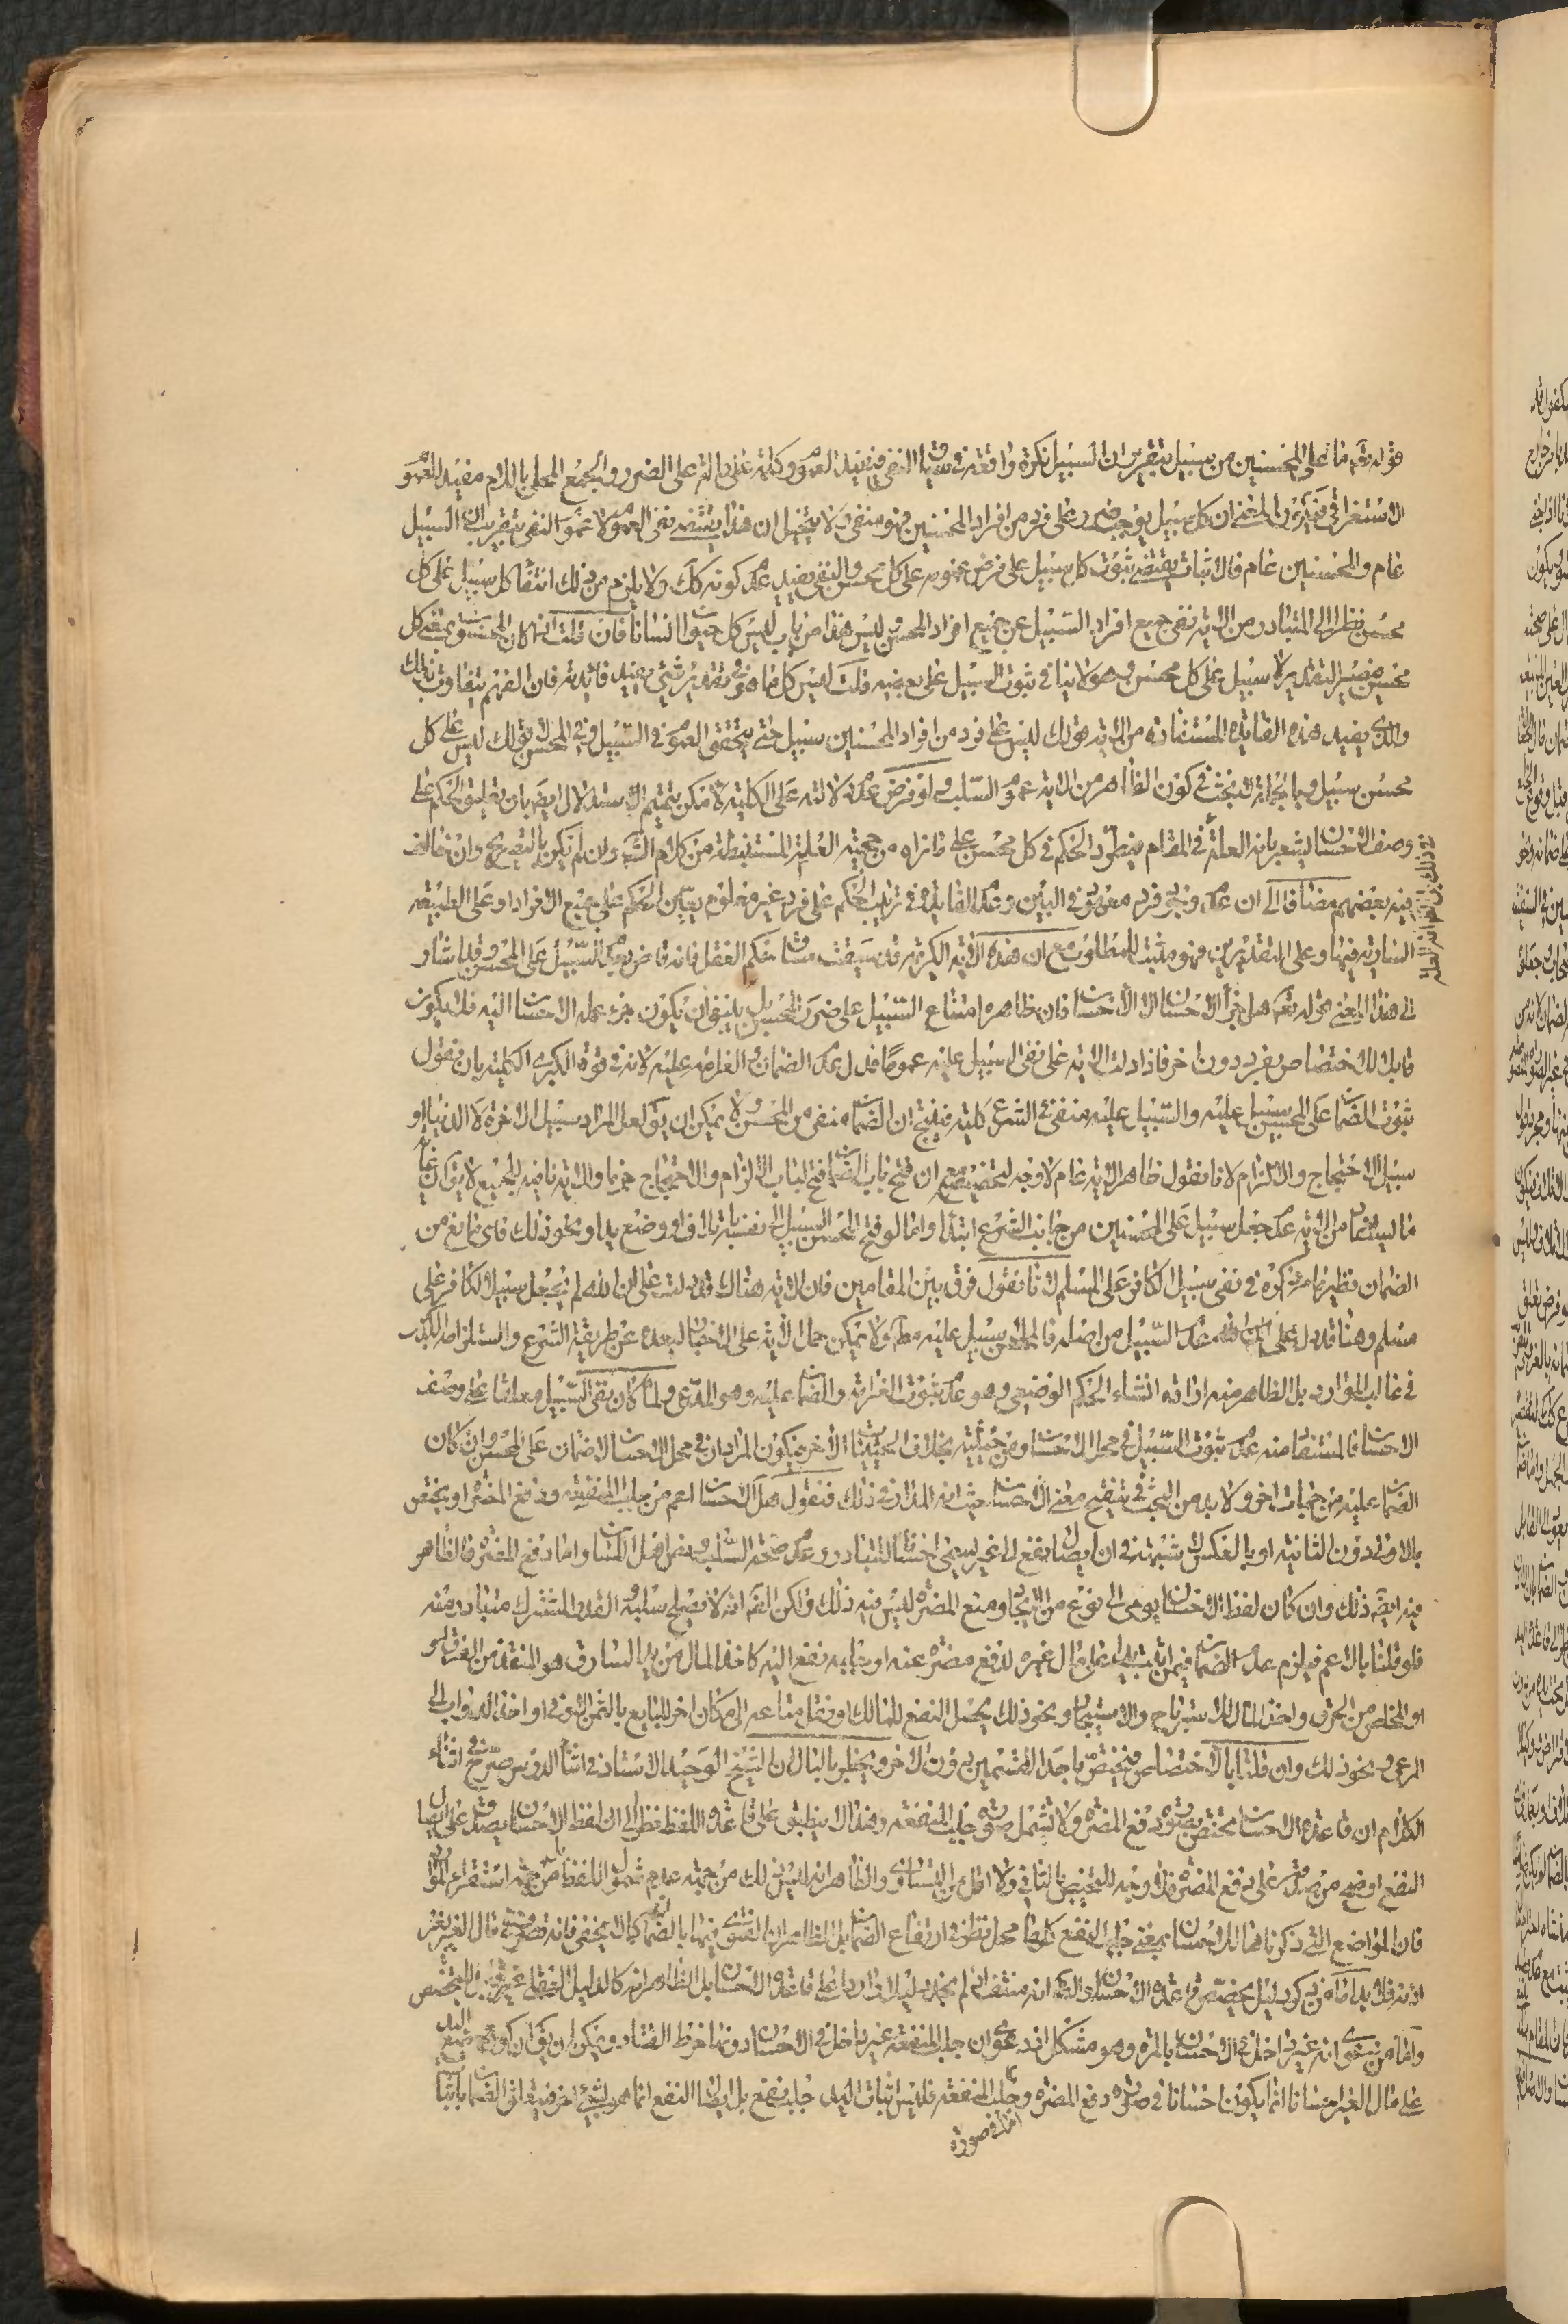 قوله تعم ما على المحسنين من سبيل بتقريب ان السبيل نكرة واقعة في سياق النفي فيفيد العموم وكلمة على دالة على الضرر والجمع المحلى باللام مفيد للعموم
الاستغراقي فيؤدي المعنى ان كل سبيل يوجب ضرر على فرد من افراد المحسنين فهو منفي ولا يتخيل ان هذا يقتضي نفي العموم لا عموم النفي بتقريب ان السبيل
عام والمحسنين عام فالاثبات يقتضي ثبوت كل سبيل على فرض عمومه على كل محسن والنفي يفيد عدم كونه كك ولا يلزم من ذلك انتفاء كل سبيل على كل
محسن نظرا الى المتبادر من الاية نفي جميع افراد السبيل عن جميع افراد المحسن وليس هذا من باب ليس كل حيوان انسانا فان قلت اذا كان المحسنين بمعنى كل
محسن فيصير التقدير لا سبيل على كل محسن وهو لا ينافي ثبوت السبيل على بعضهم قلت ليس كل ما هو في تقدير شيء يفيد فائدته فان الفهم يتفاوت بذلك
والذي يفيد هذه الفايدة المستفادة من الاية قولك ليس على فرد من افراد المحسنين سبيل حتى يتحقق العموم في السبيل وفي المحسن لا قولك ليس على كل
محسن سبيل وبالجملة لا بحث في كون الظاهر من الاية عموم السلب ولو فرض عدم دلالته على الكلية لامكن تتميم الاستدلال ايضا بان تعليق الحكم على
وصف الاحسان يشعر بانه العلة في المقام فيطرد الحكم في كل محسن على ما نراه من حجية العلة المستنبطة من كلام الشارع وان لم تكن بالتصريح وان خالف
فيه بعضهم مضافا الى ان عدم وجود فرد معهود في البين وعدم الفايدة في ترتب الحكم على فرد غير معلوم يعين الحكم على جميع الافراد او على الطبيعة
السارية فيها وعلى التقديرين فهو مثبت للمطلوب مع ان هذه الاية الكريمة قد سيقت مساق حكم العقل فانه قاض بعدم السبيل على المحسن وقد اشار
الى هذا المعنى قوله تعم هل جزاء الاحسان الا الاحسان فان ظاهره امتناع السبيل على ضرر المحسن بل ينبغي ان يكون جزاء عمله الاحسان اليه فلا يكون
قابلا للاختصاص بفرد دون اخر فاذا دلت الاية على نفي السبيل عليه عموما فدل عدم الضمان والغرامة عليه لانه في قوة الكبرى الكلية بان نقول
ثبوت الضمان على المحسن سبيل عليه والسبيل عليه منفي في الشرع كلية فينتج ان الضمان منفي من المحسن ولا يمكن ان يق لعل المراد سبيل الاخرة لا الدنيا او
سبيل الاحتجاج والالزام لانا نقول ظاهر الاية عام لا وجه لتخصيصه مع ان فتح باب الضمان فتح لباب الالزام والاحتجاج جزما والاية نافية للجميع لا يق ان غاية
ما يستفاد من الاية عدم جعل سبيل على المحسنين من جانب الشرع ابتداء واما لو فتح المحسن السبيل الى نفسه باتلاف او وضع يد او نحو ذلك فاي مانع من
الضمان نظير ما مر ذكره في نفي سبيل الكافر على المسلم لانا نقول فرق بين المقامين فان الاية هناك قد دلت على ان الله لم يجعل سبيلا للكافر على
مسلم وهنا قد دل على عدم السبيل من اصله فالمنفي سبيل عليه مطلقا ولا يمكن حمل الاية على الاخبار لبعده عن طريقة الشرع واستلزامه الكذب
في غالب الموارد بل الظاهر منه ارادة انشاء الحكم الوضعي وهو عدم ثبوت الغرامة والضمان عليه وهو المدعى ولما كان نفي السبيل معلقا على وصف
الاحسان فالمستفاد منه عدم ثبوت السبيل في محل الاحسان ومن حيثيته بخلاف الحيثيات الاخر فيكون المراد ان في محل الاحسان لا ضمان على المحسن وان كان
الضمان عليه من جهات اخر ولا بد من البحث في تنقيح معنى الاحسان حيث انه المدار في ذلك فنقول هل الاحسان اعم من جلب المنفعة ودفع المضرة او يختص
بالاول دون الثانية او بالعكس لا شبهة في ان ايصال نفع الى غير يسمى احسانا للتبادر وعدم صحة السلب ونص اهل اللسان واما دفع المضرة فالظاهر
فيه ايضا ذلك وان كان لفظ الاحسان يومي الى نوع من الايجاد ومنع المضرة ليس فيه ذلك ولكن الظاهر انه لا يصلح سلبه والقدر المشترك متبادر منه
فلو قلنا بالاعم فيلزم عدم الضمان فيمن اثبت يدا على مال غيره لدفع مضرة عنه او جلب نفع اليه كاخذ المال من يد السارق والمنقذ من الغرق
او المخلص من الحرق واخذ المال للاسترباح والاستيمان ونحو ذلك يحمل النفع للمالك او نقل متاعه الى مكان اخر للبايع بالثمن الاوفى او اخذ الدواب الى
المرعى ونحو ذلك وان قلنا بالاختصاص فيختص باحد القسمين دون الاخر ويخطر بالبال ان الشيخ الوحيد الاستاد في اثناء الدرس صرح في اثناء
الكلام ان قاعدة الاحسان مختص بصورة دفع المضرة ولا تشمل صورة جلب المنفعة وهذا لا ينطبق على قاعدة اللفظ نظرا الى ان لفظ الاحسان يصدق على ايصال
النفع اوضح من صدقه على دفع المضرة فلا وجه للتخصيص بالثاني ولا اقل من التساوي والظاهر انه ليس ذلك من جهة عدم شمول اللفظ بل من جهة استقراء الموارد
فان المواضع التي ذكرناها للاحسان بمعنى جلب النفع كلها محل نظر في ارتفاع الضمان بل الظاهر ان الفتوى فيها بالضمان كما لا يخفى فانه تصرف في مال الغير بغير
اذنه فلا بد اما من ذكر دليل يخصص قاعدة الاحسان والظاهر انه منتف اذ لم نجد دليلا واردا على قاعدة الاحسان بل الظاهر انه كالدليل العقلي غير قابل للتخصيص
واما من دعوى انه غير داخل في الاحسان بالمرة وهو مشكل اذ دعوى ان جلب المنفعة غير داخل في الاحسان دونها خرط القتاد ويمكن ان يق ان كون وضع اليد
على مال الغير احسانا انما يكون احسانا في صورة دفع المضرة واما في صورة جلب المنفعة فليس اثبات اليد جلب نفع بل ايصال النفع انما هو بشيء اخر فيتعلق الضمان باثبات